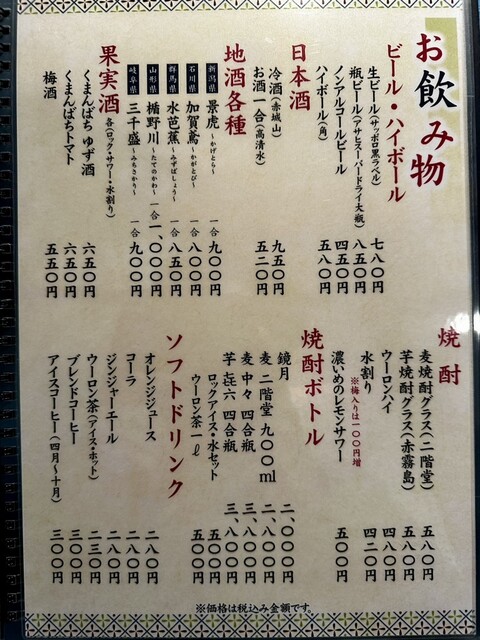 お飲み物
ビール・ハイボール
生ビール(サッポロ黒ラベル) 七八〇円
瓶ビール(アサヒスーパードライ大瓶) 八五〇円
ノンアルコールビール 四五〇円
ハイボール(角) 五八〇円
日本酒
冷酒(赤城山) 九五〇円
お酒一合(高清水) 五二〇円
地酒各種
新潟県 景虎 ~かげとら~ 一合 九〇〇円
石川県 加賀鳶 ~かがとび~ 一合 八〇〇円
群馬県 水芭蕉 ~みずばしょう~ 一合 八五〇円
山形県 楯野川 ~たてのかわ~ 一合 一、〇〇〇円
岐阜県 三千盛 ~みちさかり~ 一合 九〇〇円
果実酒 各(ロック・サワー・水割り)
くまんばち ゆず酒 六五〇円
くまんばちトマト 六五〇円
梅酒 五五〇円
焼酎
麦焼酎グラス(二階堂) 五八〇円
芋焼酎グラス(赤霧島) 五八〇円
ウーロンハイ 四八〇円
水割り 四二〇円
※梅入りは一〇〇円増
濃いめのレモンサワー 五〇〇円
焼酎ボトル
鏡月 二、〇〇〇円
麦 二階堂 九〇〇ml 二、八〇〇円
麦 中々 四合瓶 三、八〇〇円
芋 㐂六 四合瓶 三、八〇〇円
ロックアイス・水セット 五〇〇円
ウーロン茶一ℓ 五〇〇円
ソフトドリンク
オレンジジュース 二八〇円
コーラ 二八〇円
ジンジャーエール 二八〇円
ウーロン茶(アイス・ホット) 二三〇円
ブレンドコーヒー 三〇〇円
アイスコーヒー(四月~十月) 三〇〇円
※価格は税込み金額です。